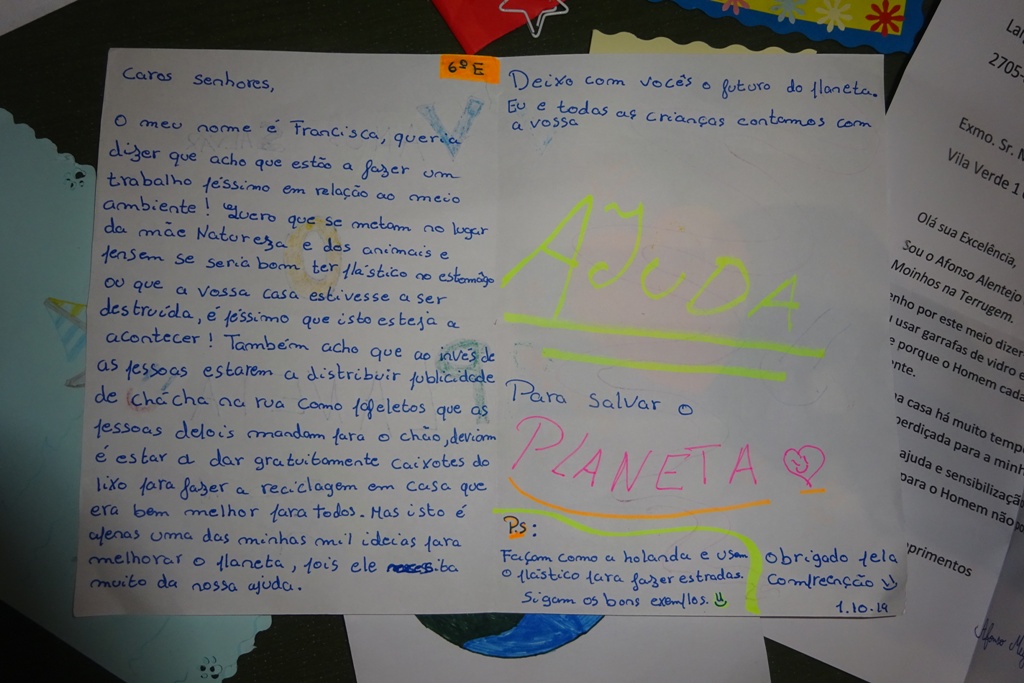 Caros senhores,
6º E
O meu nome é Francisca, queria
dizer que acho que estão a fazer um
trabalho péssimo em relação ao meio
ambiente! Quero que se metam no lugar
da mãe Natureza e dos animais e
pensem se seria bom ter plástico no estômago
ou que a vossa casa estivesse a ser
destruída, é péssimo que isto esteja a
acontecer! Também acho que ao invés de
as pessoas estarem a distribuir publicidade
de chácha na rua como papeletos que as
pessoas depois mandam para o chão, deviam
é estar a dar gratuitamente caixotes do
lixo para fazer a reciclagem em casa que
era bem melhor para todos. Mas isto é
apenas uma das minhas mil ideias para
melhorar o planeta, pois ele necessita
muito da nossa ajuda.
Deixo com vocês o futuro do planeta.
Eu e todas as crianças contamos com
a vossa
AJUDA
Para salvar o
PLANETA
P.s:
Façam como a holanda e usem
o plástico para fazer estradas.
Sigam os bons exemplos.
Obrigado pela
compreenção
1.10.19
2705-
Exmo. Sr.
Vila Verde 1
Olá sua Excelência,
Sou o Afonso Alentejo
Moinhos na Terrugem.
enho por este meio dizer
usar garrafas de vidro e
porque o Homem cada
nte.
a casa há muito temp
perdiçada para a minh
ajuda e sensibilizaçã
para o Homem não
primentos